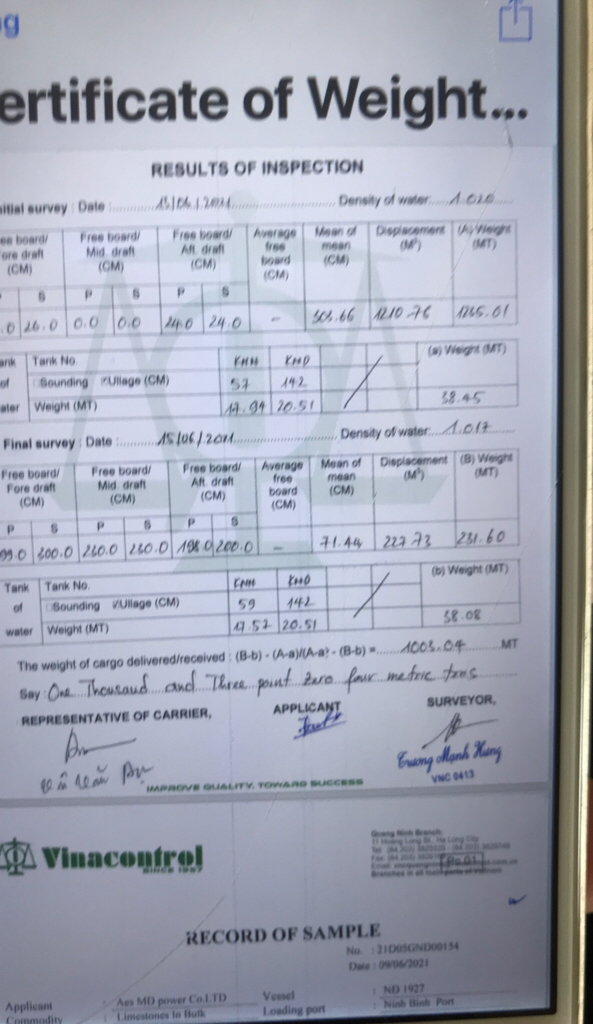 g
ertificate of Weight...
RESULTS OF INSPECTION
nitial survey : Date : 15/06/2021 Density of water: 1.020
ee board/ ore draft (CM) Free board/ Mid. draft (CM) Free board/ Aft. draft (CM) Average free board (CM) Mean of mean (CM) Displacement (M³) (A) Weight (MT)
S P S P S
.0 26.0 0.0 0.0 24.0 24.0 - 303.66 1210.76 1265.01
ank Tank No. KMH KMD (a) Weight (MT)
of Sounding Ullage (CM) 57 142
ater Weight (MT) 17.94 20.51 38.45
Final survey : Date : 15/06/2021 Density of water: 1.017
Free board/ Fore draft (CM) Free board/ Mid. draft (CM) Free board/ Aft. draft (CM) Average free board (CM) Mean of mean (CM) Displacement (M³) (B) Weight (MT)
P S P S P S
99.0 300.0 260.0 260.0 198.0 200.0 - 71.44 227.73 231.60
Tank Tank No. KMH KMD (b) Weight (MT)
of Sounding Ullage (CM) 59 142
water Weight (MT) 17.57 20.51 38.08
The weight of cargo delivered/received : (B-b) - (A-a)/(A-a) - (B-b) = 1003.04 MT
Say: One Thousand and Three point zero four metric tons
REPRESENTATIVE OF CARRIER, APPLICANT SURVEYOR,
Trương Mạnh Hùng
VNC 0413
IMPROVE QUALITY, TOWARD SUCCESS
Vinacontrol
SINCE 1957
Quang Ninh Branch:
11 Hoang Long St., Ha Long City
RECORD OF SAMPLE
No. : 21D05GND00154
Date : 09/06/2021
Applicant : Aes MD power Co.LTD Vessel : ND 1927
Commodity : Limestones In Bulk Loading port : Ninh Binh Port